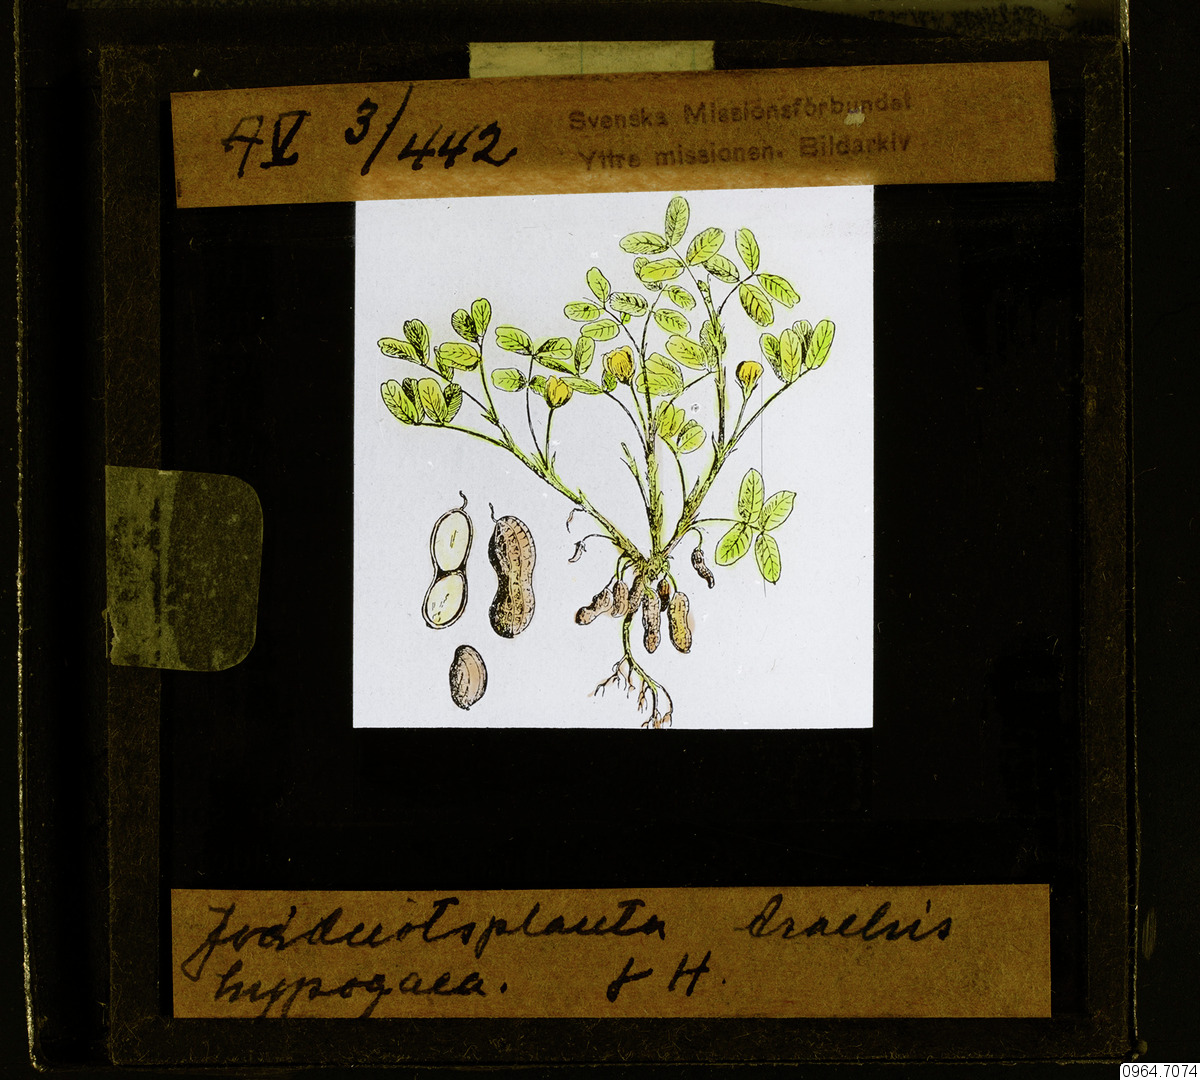 AV 3/442
Svenska Missionsförbundet
Yttre missionen. Bildarkiv
Jordnötsplanta Arachis
hypogaea. J H.
0964.7074